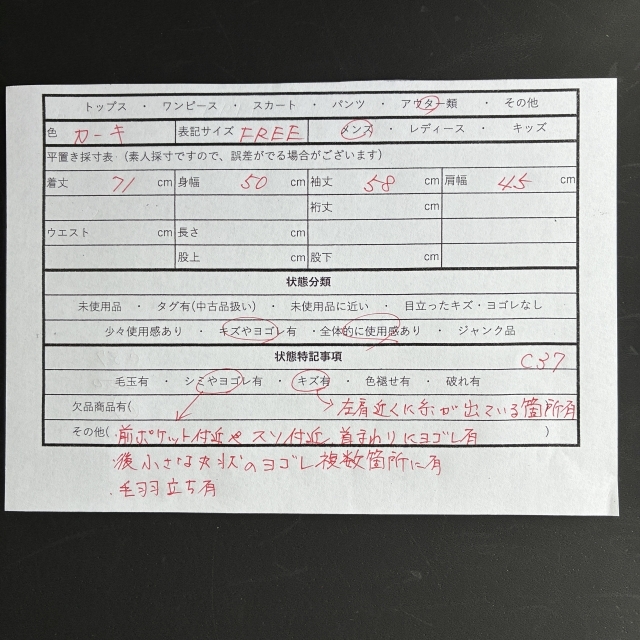 トップス ・ ワンピース ・ スカート ・ パンツ ・ アウター類 ・ その他
色 カーキ 表記サイズ FREE メンズ ・ レディース ・ キッズ
平置き採寸表 (素人採寸ですので、誤差がでる場合がございます)
着丈 71 cm 身幅 50 cm 袖丈 58 cm 肩幅 45 cm
裄丈 cm
ウエスト cm 長さ cm
股上 cm 股下 cm
状態分類
未使用品 ・ タグ有(中古品扱い) ・ 未使用品に近い ・ 目立ったキズ・ヨゴレなし
少々使用感あり ・ キズやヨゴレ有 ・全体的に使用感あり ・ ジャンク品
状態特記事項 C37
毛玉有 ・ シミやヨゴレ有 ・ キズ有 ・ 色褪せ有 ・ 破れ有
欠品商品有( 左肩近くに糸が出ている箇所有
その他( ・前ポケット付近やスソ付近、首まわりにヨゴレ有 )
・後小さな丸状のヨゴレ複数箇所に有
・毛羽立ち有